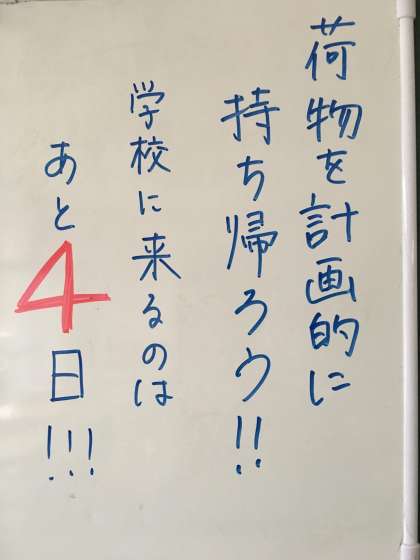 荷物を計画的に
持ち帰ろう!!
学校に来るのは
あと4日!!!